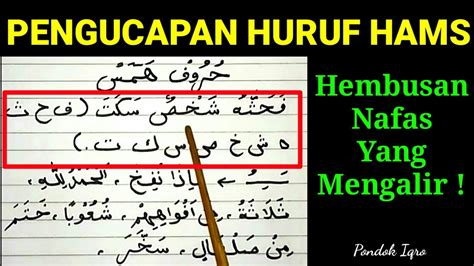 PENGUCAPAN HURUF HAMS
حُرُوْفُ هَمْسٌ
فَحَثَّهُ شَخْصٌ سَكَتَ (ف ح ث
ه ش خ ص س ك ت .)
إِذَا نَفِخَ ، الْحَمْدُ لِلّٰهِ ،
ثَلَاثَةَ ، مِنْ أَفْوَاهِهِمْ ، شُعُوْبًا ، خَتَمَ
مِنْ صَلْصَالٍ ، سَخَّرَ .
Hembusan
Nafas
Yang
Mengalir !
Pondok Iqro